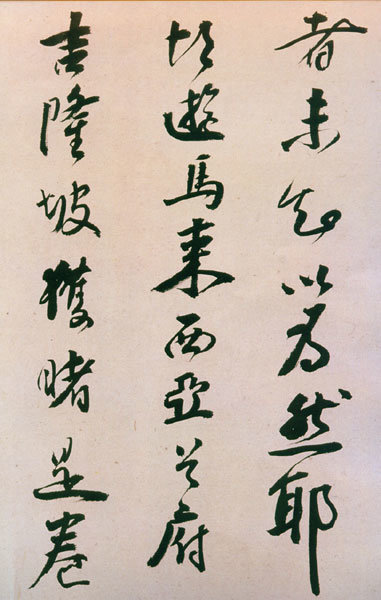 者未知以為然耶
頃遊馬来西亞首府
吉隆坡獲睹是卷